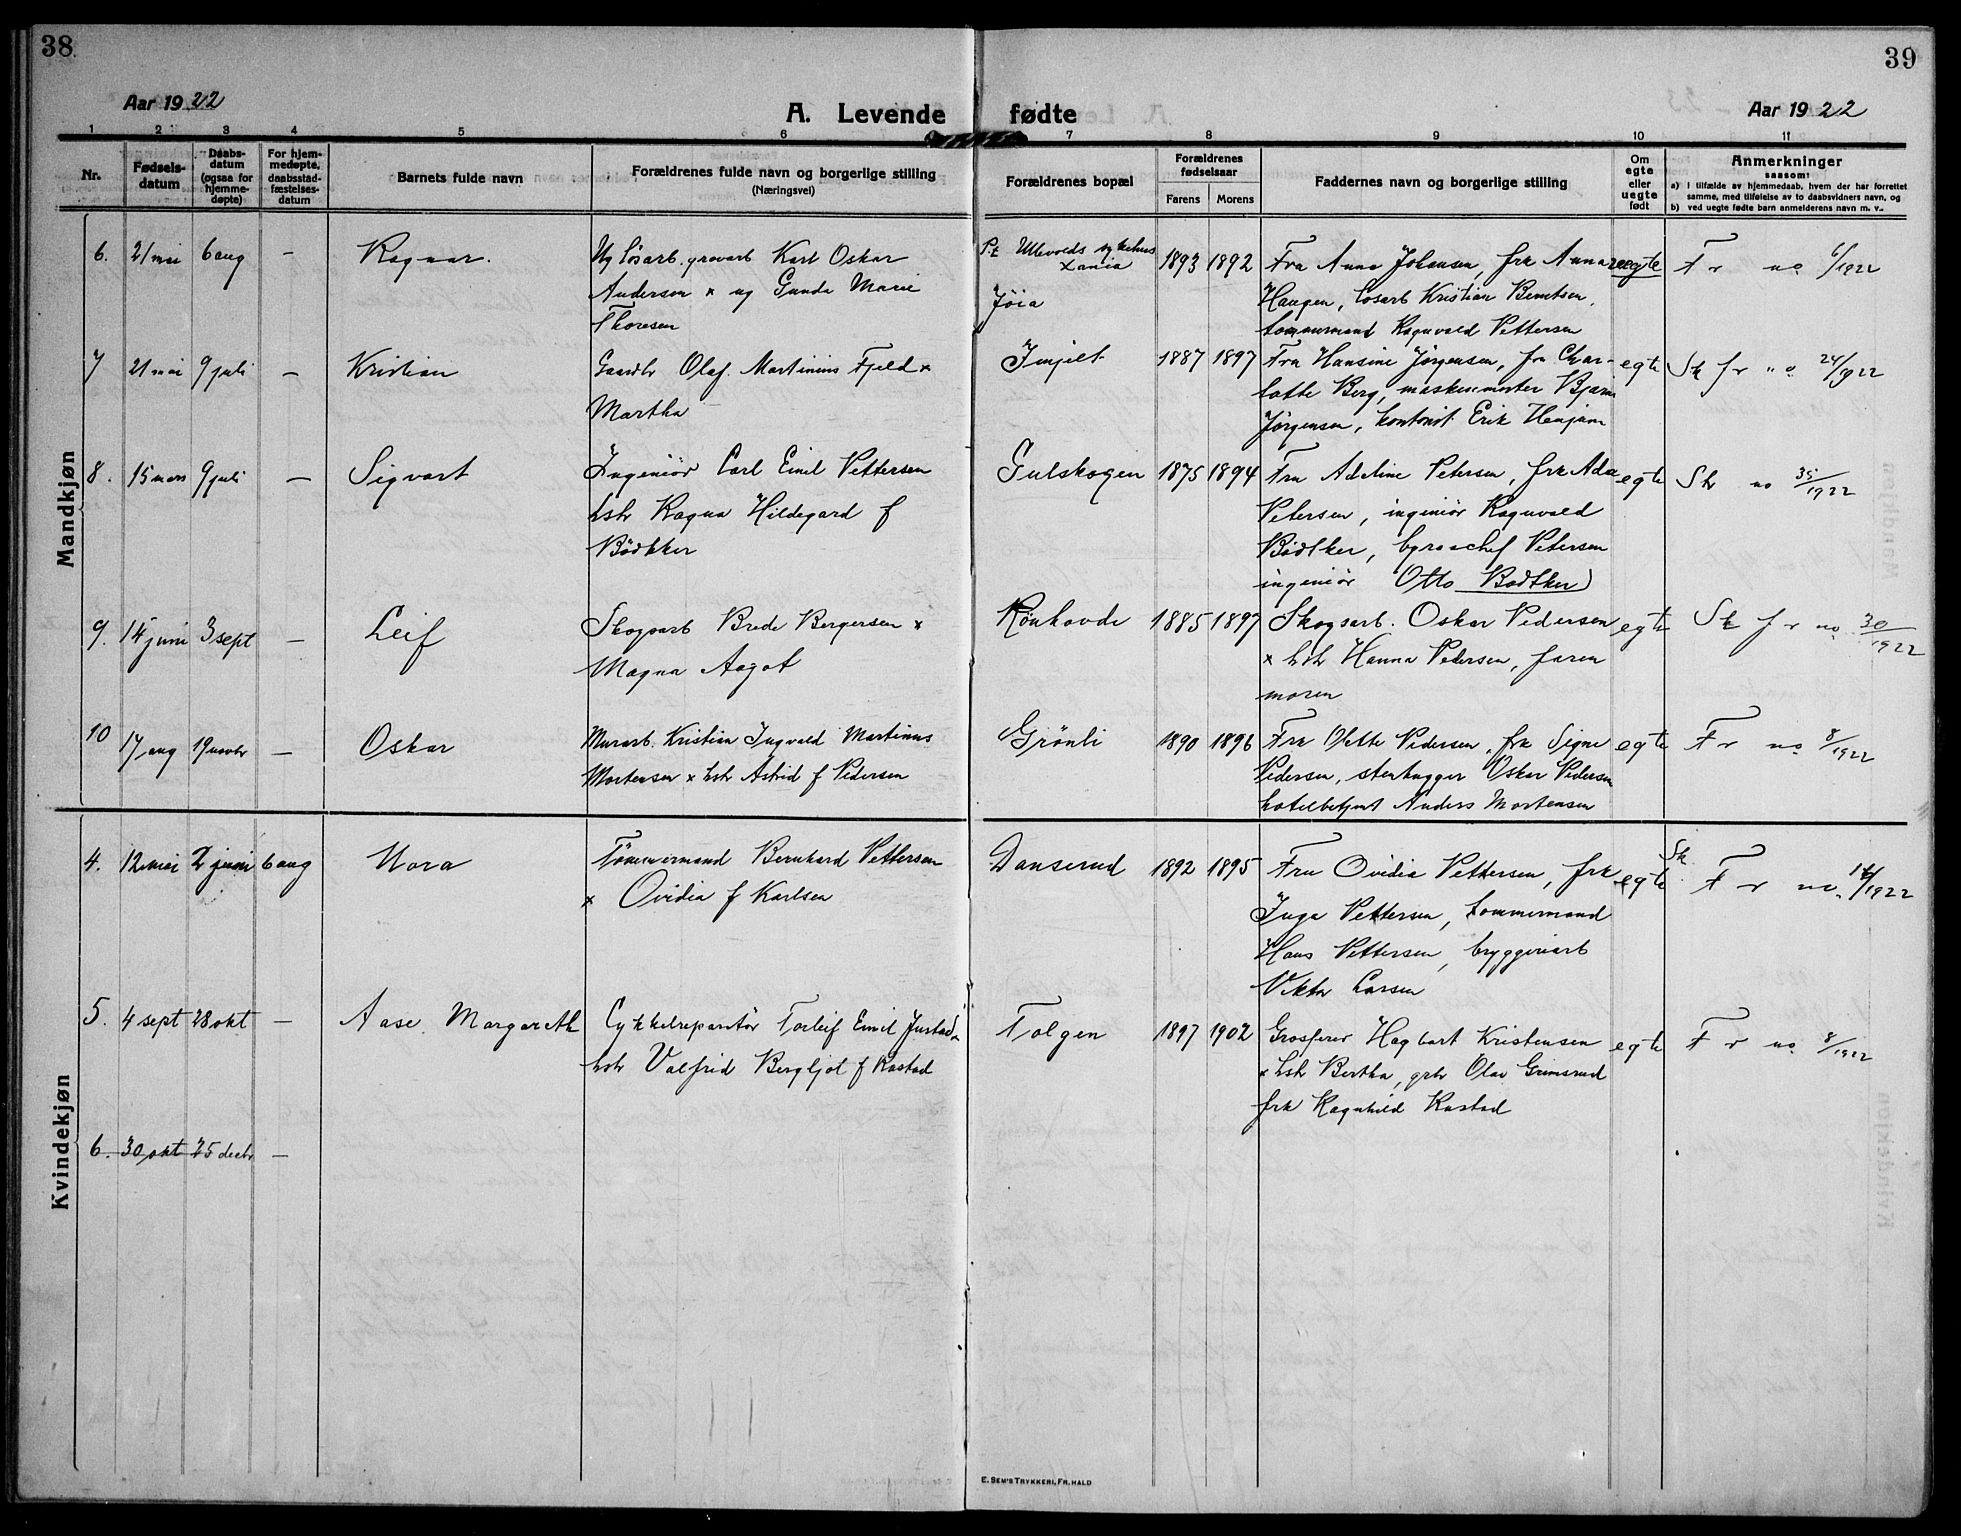 38
39
Aar 1922
A. Levende fødte
Aar 1922
1 2 3 4 5 6 7 8 9 10 11
Nr.
Fødsels-
datum
Daabs-
datum
(ogsaa for
hjemme-
døpte)
For hjem-
medøpte,
daabsstad-
fæstelses-
datum
Barnets fulde navn
Forældrenes fulde navn og borgerlige stilling
(Næringsvei)
Forældrenes bopæl
Forældrenes
fødselsaar
Farens Morens
Faddernes navn og borgerlige stilling
Om
egte
eller
uegte
født
Anmerkninger
saasom:
a) i tilfælde av hjemmedaab, hvem der har forrettet
samme, med tilføielse av to daabsvidners navn, og
b) ved uegte fødte barn anmelderens navn m. v.
Mandkjøn
6. 21 mai 6 aug – Ragnar.
Ug løsarb. gravarb Karl Oskar
Andersen × ug Gunda Marie
Thoresen
Pt Ullevolds sykehus
Xania
Jøia
1893 1892
Fra Anna Johansen, frk Anna
Haugen, løsarb Kristian Berntsen,
tømmermand Ragnvald Pettersen
uegte
F r no 6/1922
7 21 mai 9 juli – Kristian
Gaardbr Olaf Martinius Fjeld ×
Martha
Imjelt
1887 1897
Fra Hansine Jørgensen, fru Char-
lotte Berg, maskinmester Bjarne
Jørgensen, kontorist Erik Henjum
egte
Sk f r no 24/1922
8. 15 mars 9 juli – Sigvart
Ingeniør Carl Emil Pettersen
hstr Ragna Hildegard f
Bödtker
Gulskogen
1875 1894
Fru Adeline Petersen, frk Ada
Petersen, ingeniør Ragnvald
Bödtker, byraachef Petersen
ingeniør Otto Bødtker
egte
Sk no 35/1922
9. 14 juni 3 sept – Leif
Skogsarb Brede Bergersen ×
Magna Aagot
Rönhovde
1885 1897
Skogsarb. Oskar Pedersen
× hstr Hanna Pedersen, faren
moren
egte
Sk f r no 30/1922
10 17 aug 19 novbr – Oskar
Murarb. Kristian Ingvald Martinus
Mortensen × hstr Astrid f Pedersen
Grönli
1890 1896
Frk Olette Pedersen, frk Signe
Pedersen, stenhugger Oskar Pedersen
hotelbetjent Anders Mortensen
egte
F r no 8/1922
Kvindekjøn
4. 12 mai 2 juni 6 aug Nora
Tömmermand Bernhard Pettersen
× Ovidia f Karlsen
Danserud
1892 1895
Fru Ovidia Pettersen, frk
Inga Pettersen, tømmermand
Hans Pettersen, bryggeriarb
Viktor Larsen
egte
Sk
F r no. /1922
5. 4 sept 28 okt – Aase Margareth
Cykkelreparatør Torleif Emil Justad ×
hstr Valfrid Bergljot f Rastad
Tolgen
1897 1902
Grosserer Hagbart Kristensen
× hstr Bertha, grbr Olav Grimsrud
frk Ragnhild Rastad
egte
F r no 8/1922
6. 30 okt 25 decbr –
E. SEM'S TRYKKERI, FR.HALD